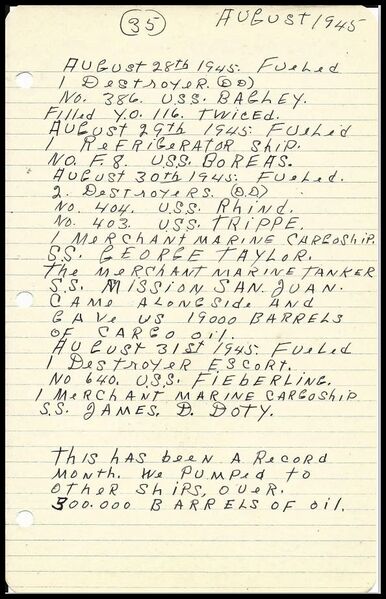 35
AUGUST 1945
AUGUST 28th 1945. Fueled
1 DESTROYER. (DD)
No. 386. U.S.S. BAGLEY.
Filled Y.O. 116. TWICED.
AUGUST 29th 1945. Fueled
1 ReFRIGeRATOR SHIP.
No. F.8. U.S.S. BOREAS.
AUGUST 30th 1945. Fueled.
2. DESTROYERS. (DD)
No. 404. U.S.S. Rhind.
No. 403. U.S.S. TRIPPE.
1 MERCHANT MARINE CARGOSHIP.
S.S. GEORGE TAYLOR.
The MERCHANT MARINE TANKER
S.S. MISSION SAN. JUAN.
CAME ALONGSIDE AND
GAVE US 19000 BARRELS
OF CARGO oil.
AUGUST 31st 1945. Fueled
1 DESTROYER ESCORT.
No 640. U.S.S. FIEBERLING.
1 MERCHANT MARINE CARGOSHIP
S.S. JAMES. D. DOTY.
THIS HAS BEEN A RECORD
MONTH. WE PUMPED TO
OTHER SHIPS, OVER.
300.000 BARRELS OF oil.